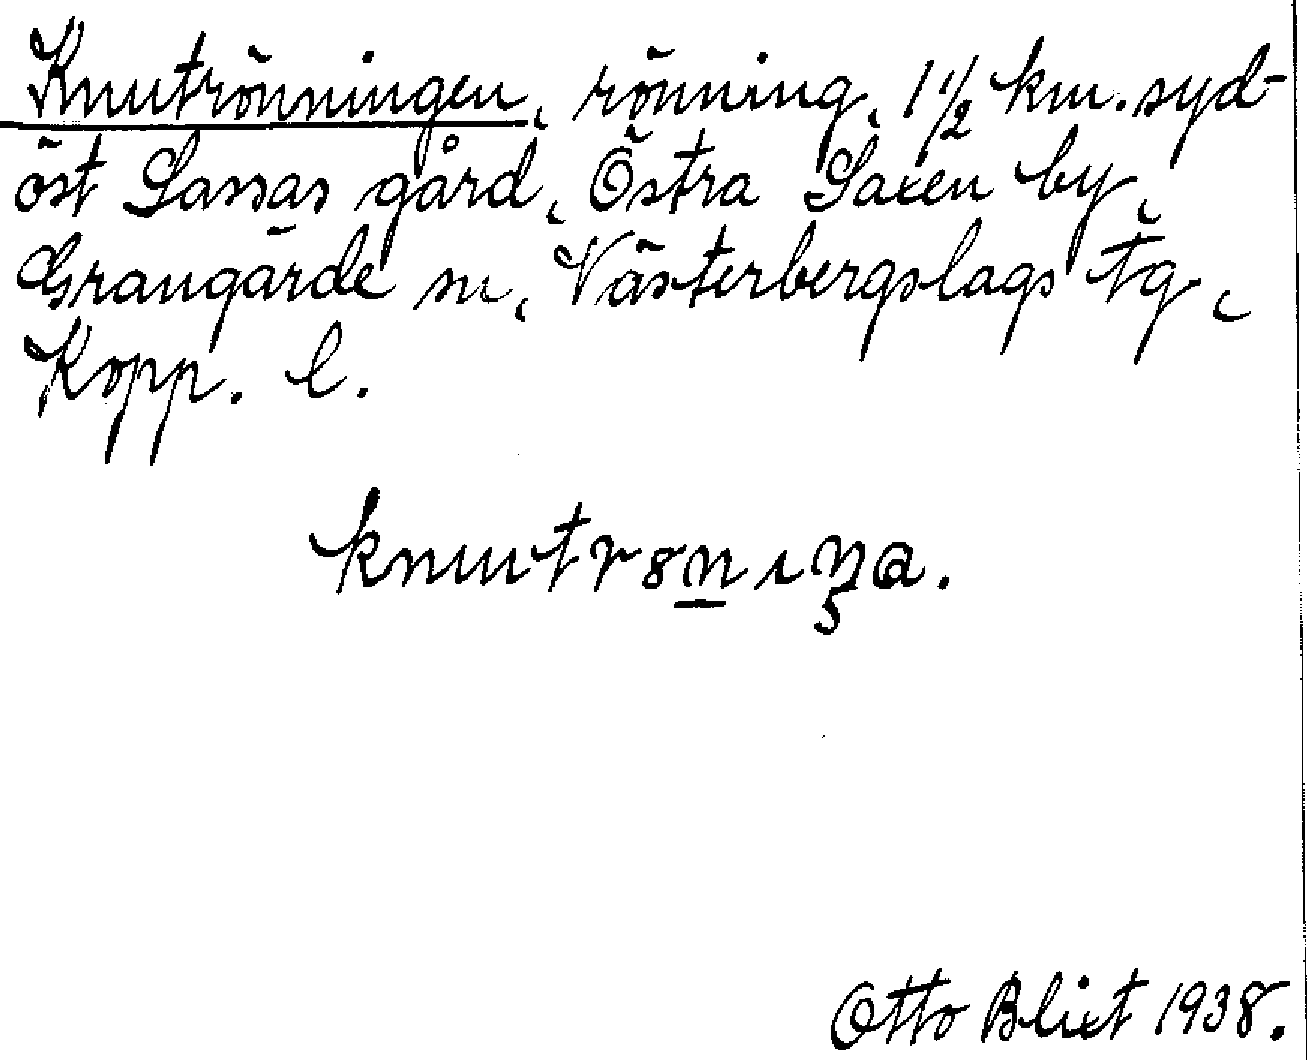 Knutrönningen, rönning, 1 1/2 km. syd-
öst Lassas gård, Östra Saxen by,
Grangärde sn, Västerbergslags tg,
Kopp. l.
knutrönıŋa.
Otto Blixt 1938.